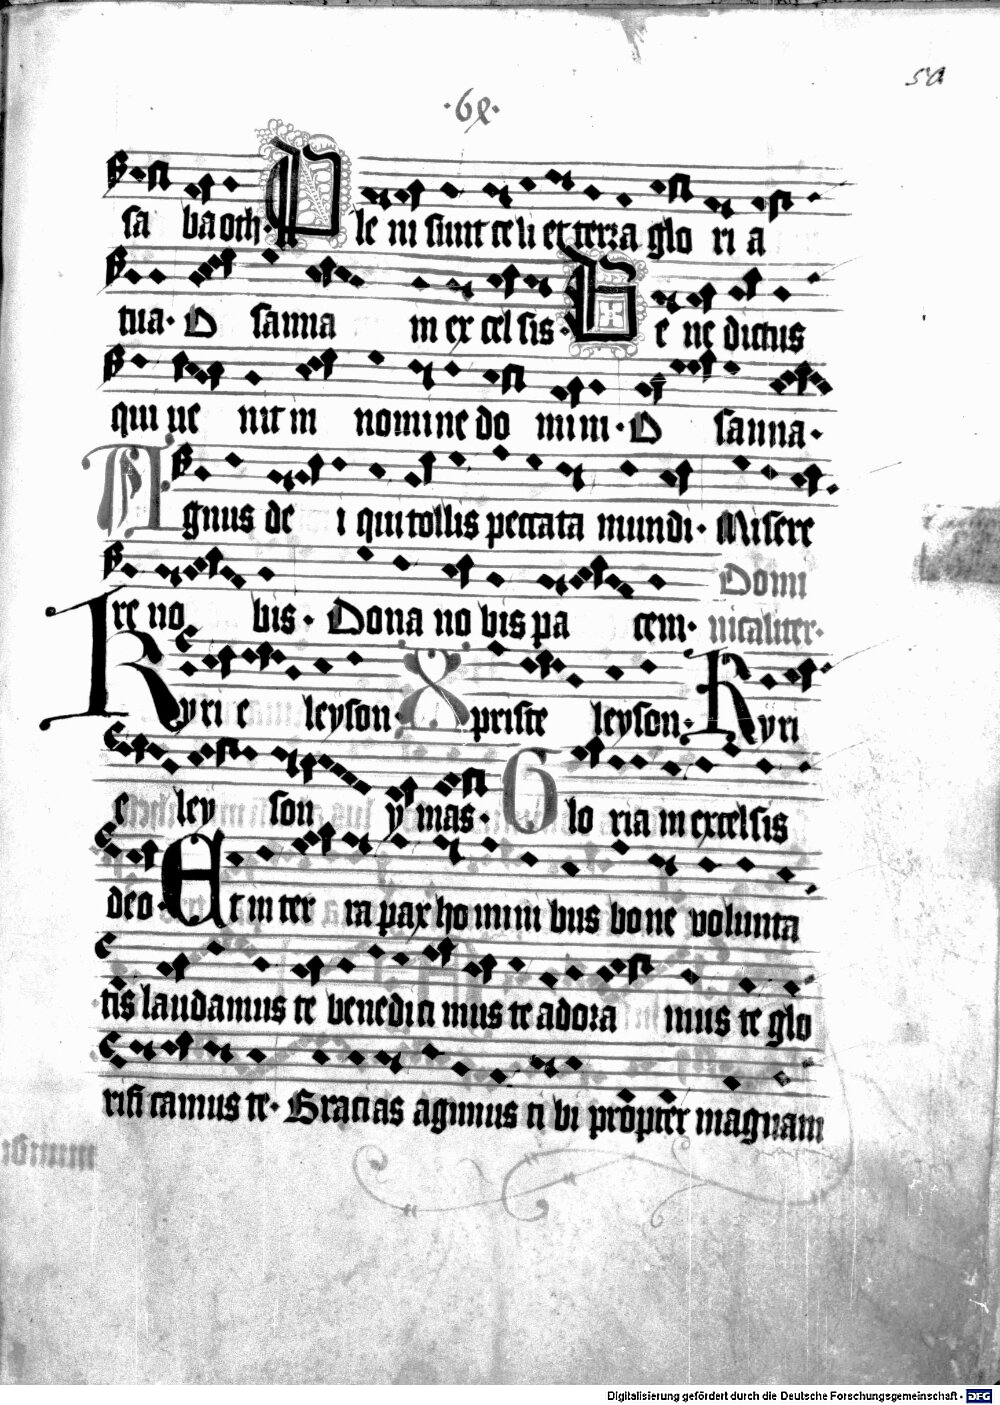 50
·6x·
sa baoth· Ple ni sunt celi et terra glo ri a
tua· O sanna in ex cel sis· Be ne dictus
qui ue nit in nomine do mini· O sanna·
Agnus de i qui tollis peccata mundi· Misere
re no bis· Dona no bis pa cem· Domi
nicaliter·
Kyri e leyson· Xpriste leyson· Kyri
e ley son ymas· Glo ria in excelsis
deo· Et in ter ra pax homini bus bone volunta
tis laudamus te benedici mus te adora mus te glo
rifi camus te· Gracias agimus ti bi propter magnam
Digitalisierung gefördert durch die Deutsche Forschungsgemeinschaft - DFG